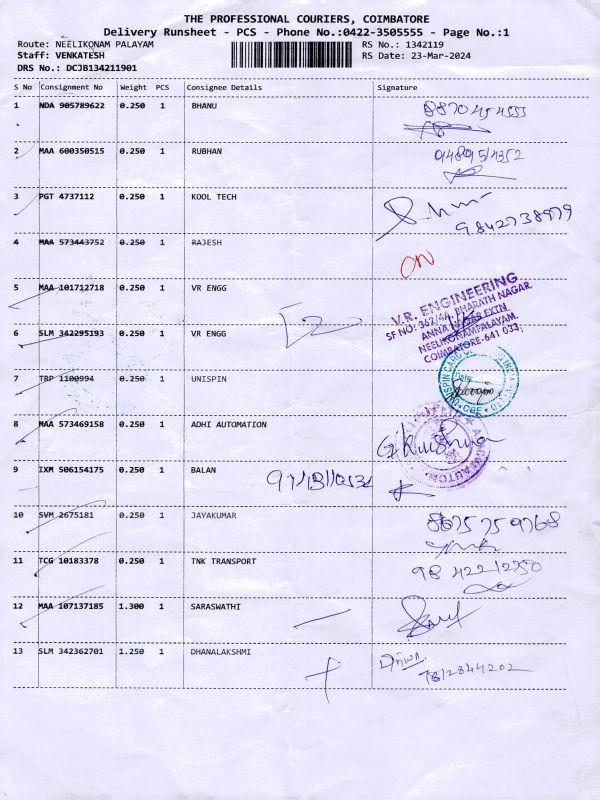 THE PROFESSIONAL COURIERS, COIMBATORE
Delivery Runsheet - PCS - Phone No.:0422-3505555 - Page No.:1
Route: NEELIKONAM PALAYAM
RS No.: 1342119
Staff: VENKATESH
RS Date: 23-Mar-2024
DRS No.: DCJB134211901
S No Consignment No Weight PCS Consignee Details Signature
1 NDA 905789622 0.250 1 BHANU
2 MAA 600350515 0.250 1 RUBHAN
3 PGT 4737112 0.250 1 KOOL TECH
9842738979
4 MAA 573443752 0.250 1 RAJESH
ON
5 MAA 101712718 0.250 1 VR ENGG
V.R. ENGINEERING
SF NO: 362/4A, BHARATH NAGAR
ANNA NAGAR EXTN
NEELIKONAMPALAYAM.
COIMBATORE-641 033.
6 SLM 342295193 0.250 1 VR ENGG
7 TRP 1100994 0.250 1 UNISPIN
8 MAA 573469158 0.250 1 ADHI AUTOMATION
9 IXM 506154175 0.250 1 BALAN
10 SVM 2675181 0.250 1 JAYAKUMAR
8675759768
11 TCG 10183378 0.250 1 TNK TRANSPORT
9842212250
12 MAA 107137185 1.300 1 SARASWATHI
13 SLM 342362701 1.250 1 DHANALAKSHMI
7812844202